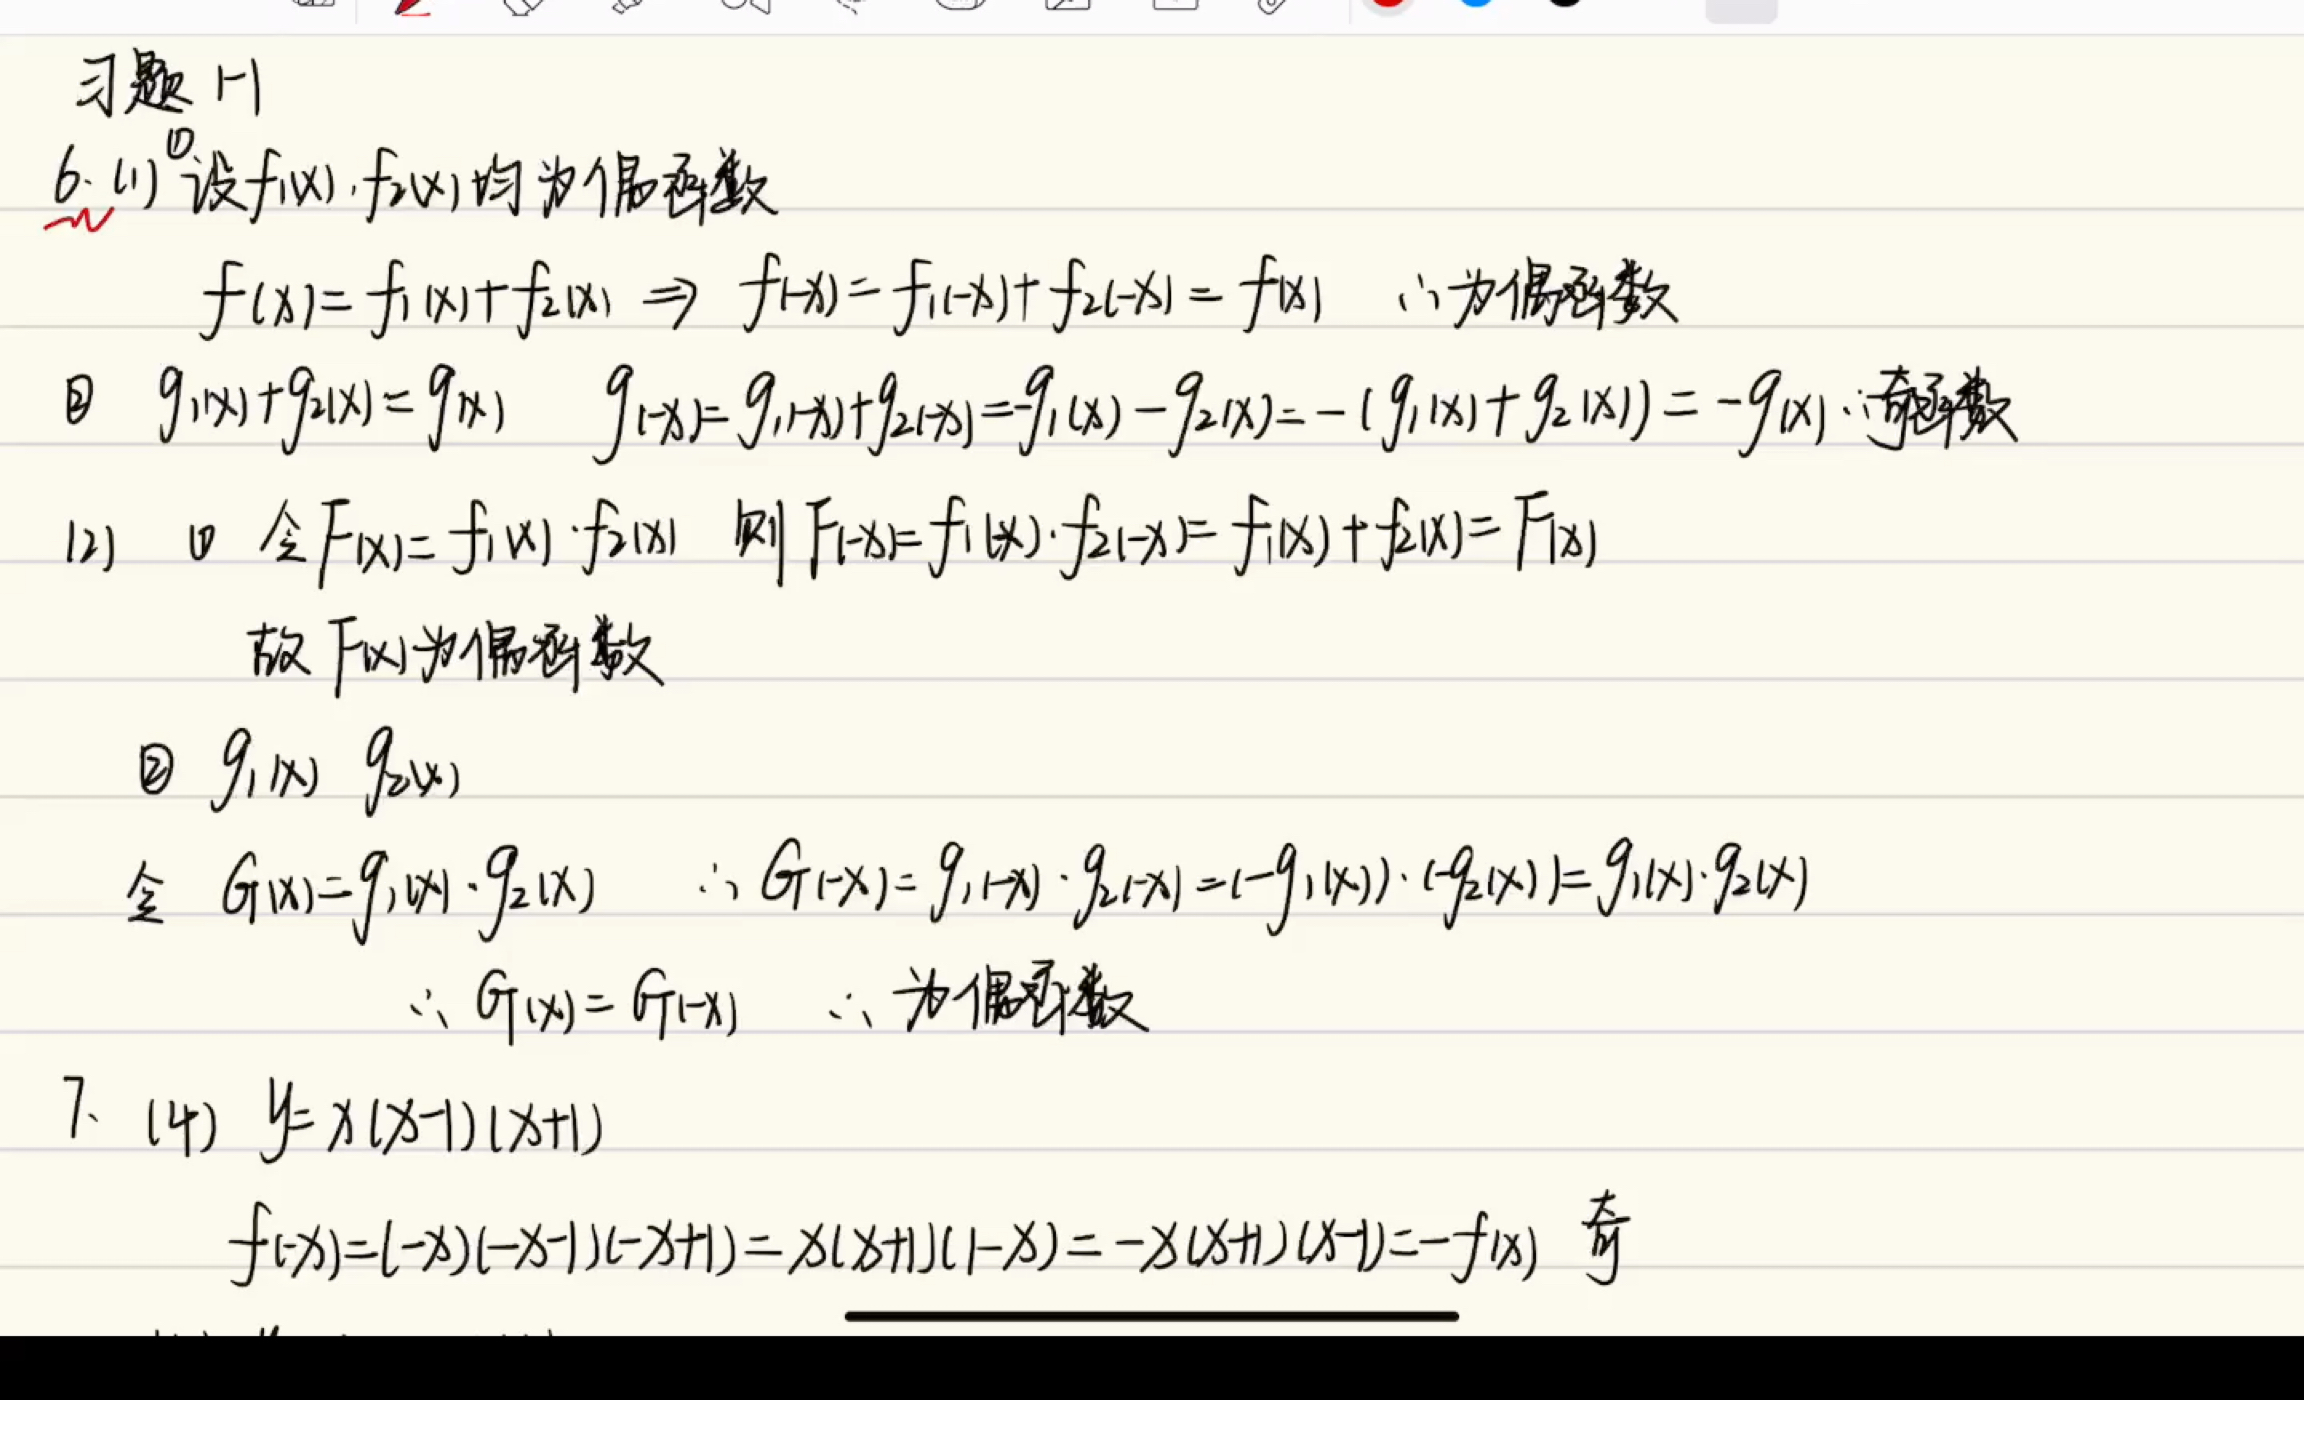 习题 1-1
6.(1) ①设f₁(x),f₂(x)均为偶函数
f(x)=f₁(x)+f₂(x) ⇒ f(-x)=f₁(-x)+f₂(-x)=f(x) ∴为偶函数
② g₁(x)+g₂(x)=g(x) g(-x)=g₁(-x)+g₂(-x)=-g₁(x)-g₂(x)=-(g₁(x)+g₂(x))=-g(x) ∴奇函数
(2) ① 令F(x)=f₁(x)·f₂(x) 则F(-x)=f₁(-x)·f₂(-x)=f₁(x)+f₂(x)=F(x)
故F(x)为偶函数
② g₁(x) g₂(x)
令 G(x)=g₁(x)·g₂(x) ∴G(-x)=g₁(-x)·g₂(-x)=(-g₁(x))·(-g₂(x))=g₁(x)·g₂(x)
∴G(x)=G(-x) ∴为偶函数
7. (4) y=x(x-1)(x+1)
f(-x)=(-x)(-x-1)(-x+1)=x(x+1)(1-x)=-x(x+1)(x-1)=-f(x) 奇